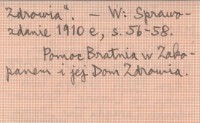 Zdrowia". – W: Sprawo-
zdanie 1910 e, s. 56-58.
Pomoc Bratnia w Zako-
panem i jej Dom Zdrowia.